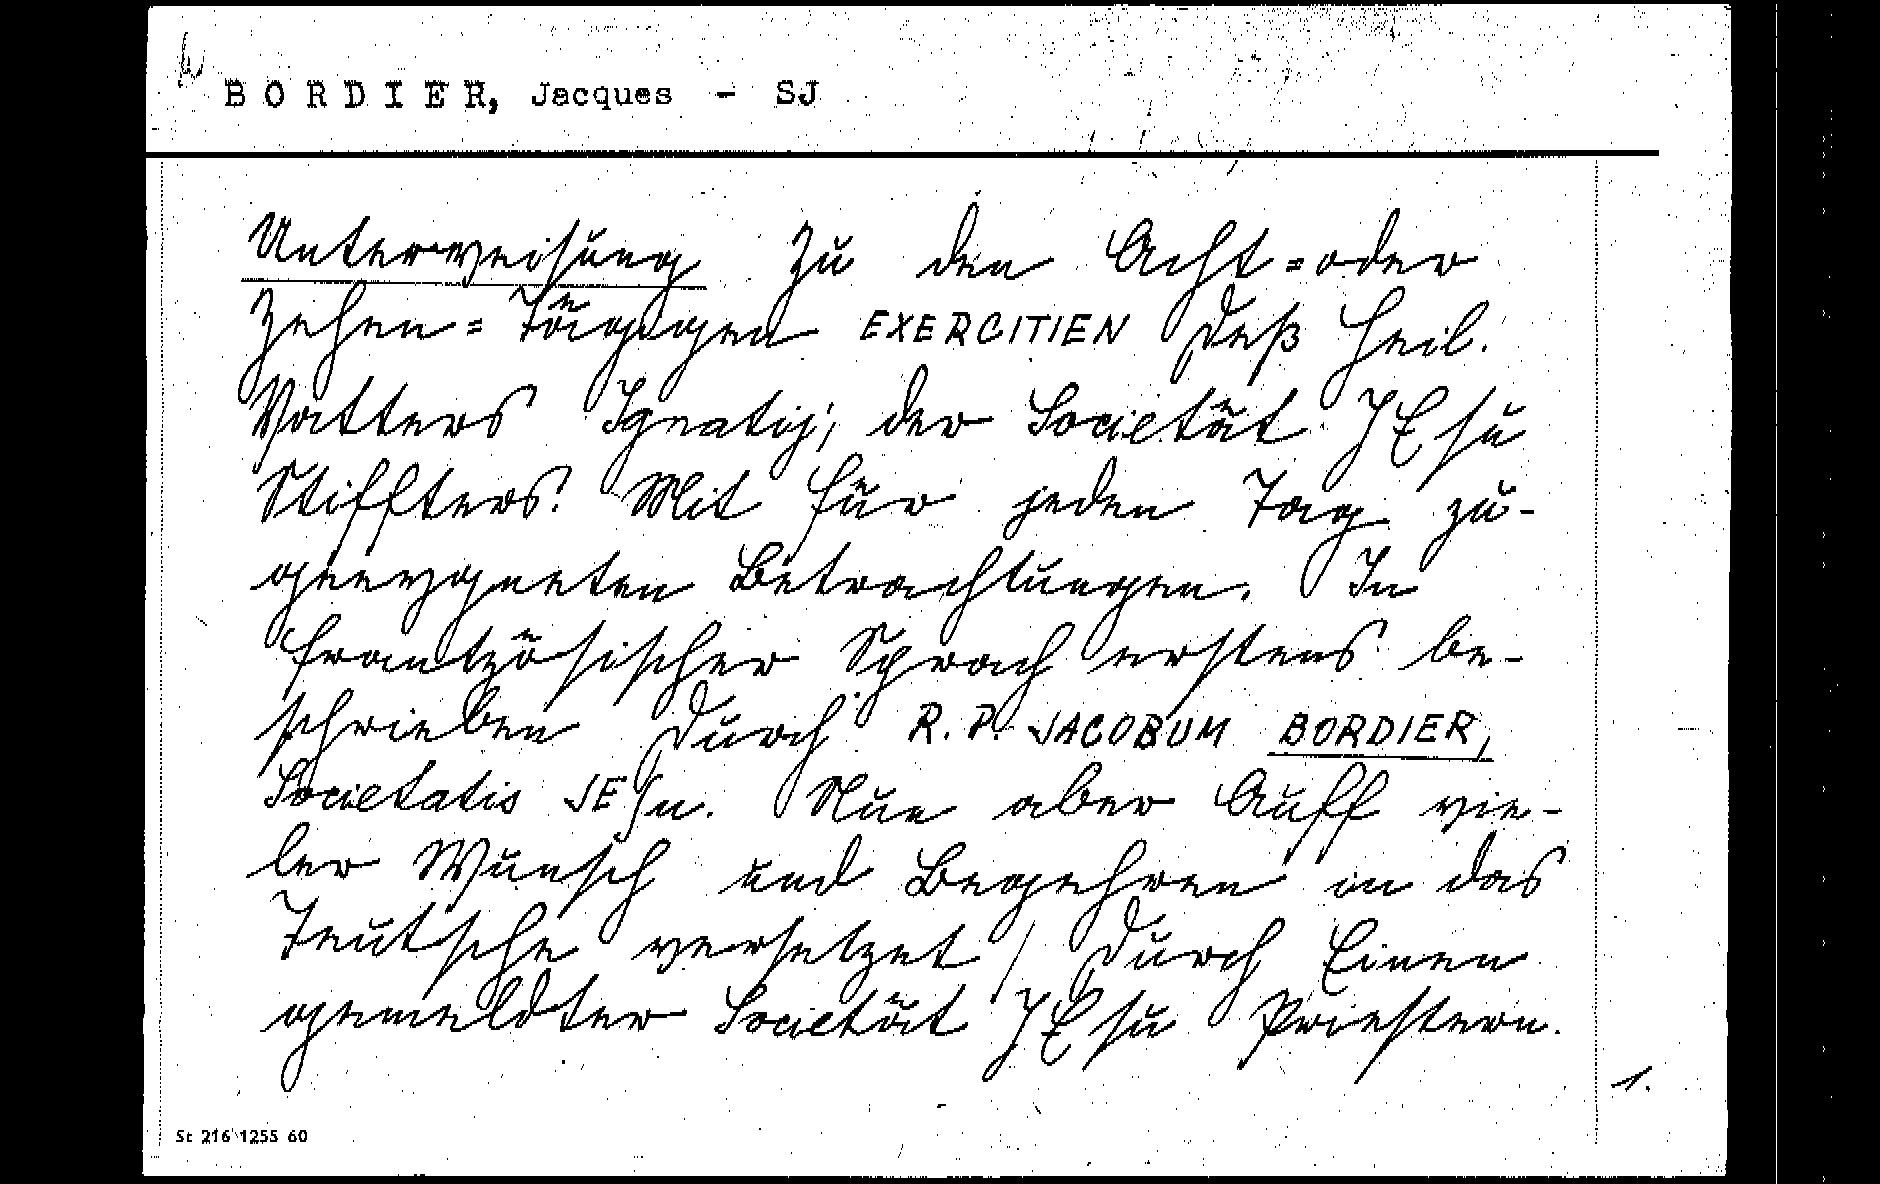 BORDIER, Jacques - SJ
Unterweisung Zu den Acht=oder
Zehen=Tägigen EXERCITIEN Deß Heil.
Vatters Ignatij, der Societät JEsu
Stiffters! Mit für jeden Tag zu-
geeygneten Betrachtungen. In
frantzösischer Sprach erstens be-
schrieben Durch R. P. JACOBUM BORDIER,
Societatis JESu. Nun aber Auff vie-
ler Wunsch und Begehren in das
Teutsche versetzet / Durch Einen
gemeldter Societät JEsu Priestern.
1.
St 216 1255 60